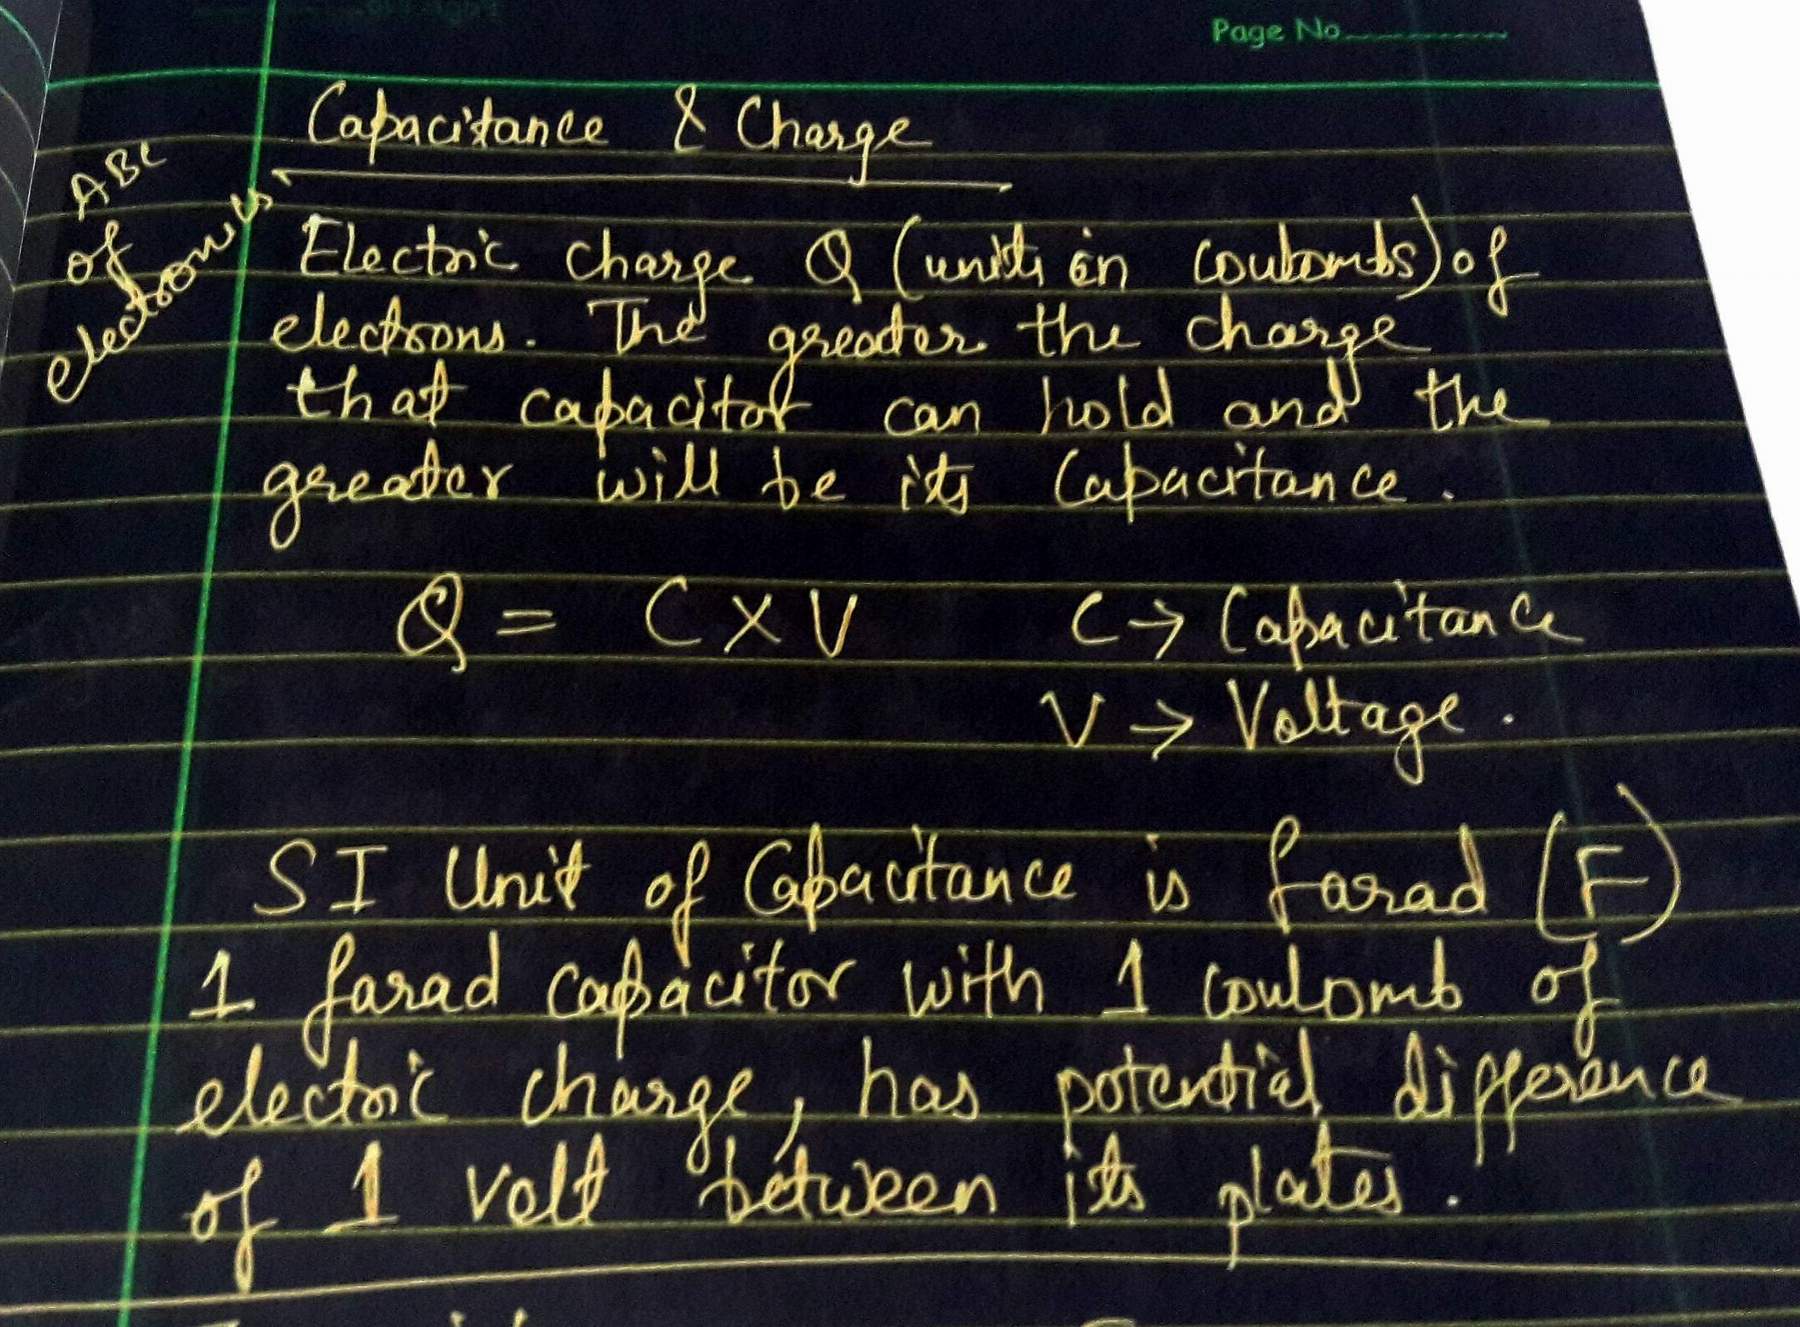 Page No
Capacitance & Charge
ABC
of
electronics
Electric charge Q (units in coulombs) of
electrons. The greater the charge
that capacitor can hold and the
greater will be its Capacitance.
Q = C X V
C → Capacitance
V → Voltage.
SI Unit of Capacitance is farad (F)
1 farad capacitor with 1 coulomb of
electric charge, has potential difference
of 1 volt between its plates.